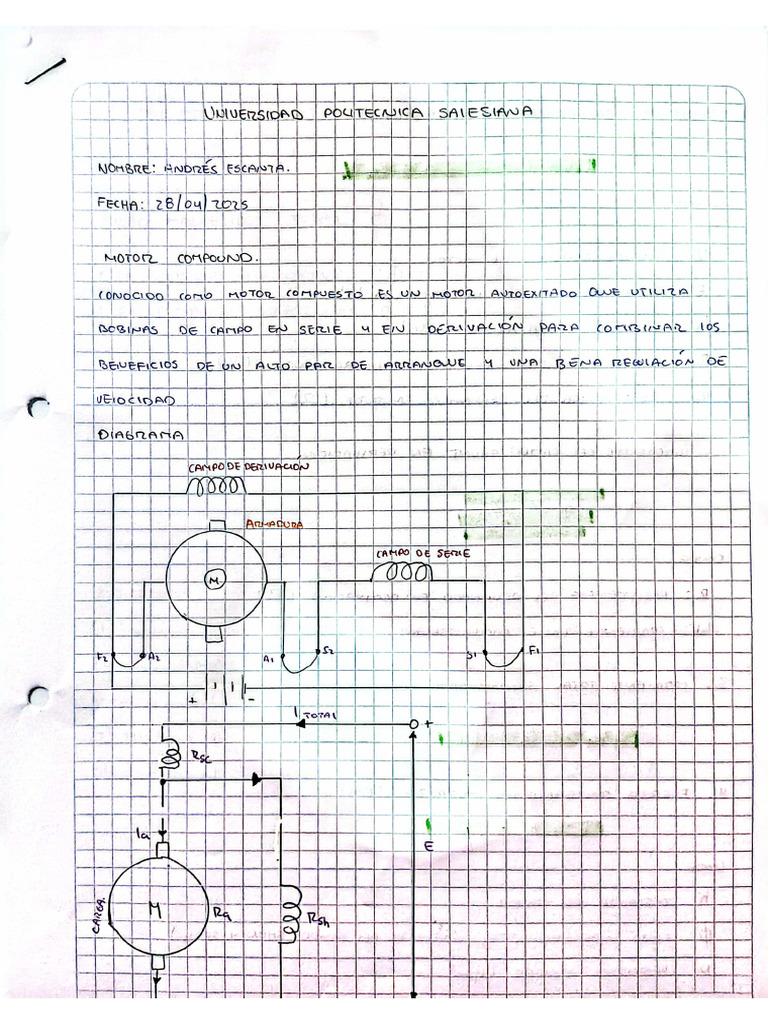 UNIVERSIDAD POLITECNICA SALESIANA
NOMBRE: ANDRÉS ESCANTA.
FECHA: 28/04/2025
MOTOR COMPOUND.
CONOCIDO COMO MOTOR COMPUESTO ES UN MOTOR AUTOEXITADO QUE UTILIZA
BOBINAS DE CAMPO EN SERIE Y EN DERIVACIÓN PARA COMBINAR LOS
BENEFICIOS DE UN ALTO PAR DE ARRANQUE Y UNA BENA REGULACIÓN DE
VELOCIDAD
DIAGRAMA
CAMPO DE DERIVACIÓN
ARMADURA
CAMPO DE SERIE
M
F2 A2 A1 S2 S1 F1
+ -
I TOTAL
+
Rsc
Ia
E
CARGA
M
Ra
Rsh